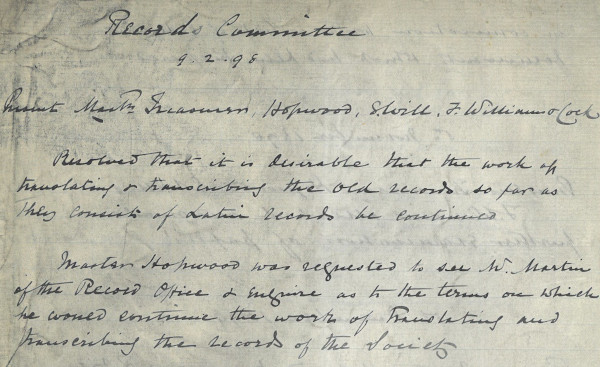 Records Committee
9.2.98
Present Mastrs Treasurer, Hopwood, , F. Williams & Cock
Resolved that it is desirable that the work of
translating & transcribing the old records so far as
they consist of Latin records be continued
Master Hopwood was requested to see W. Martin
of the Record Office & enquire as to the terms on which
he would continue the work of translating and
transcribing the records of the Society